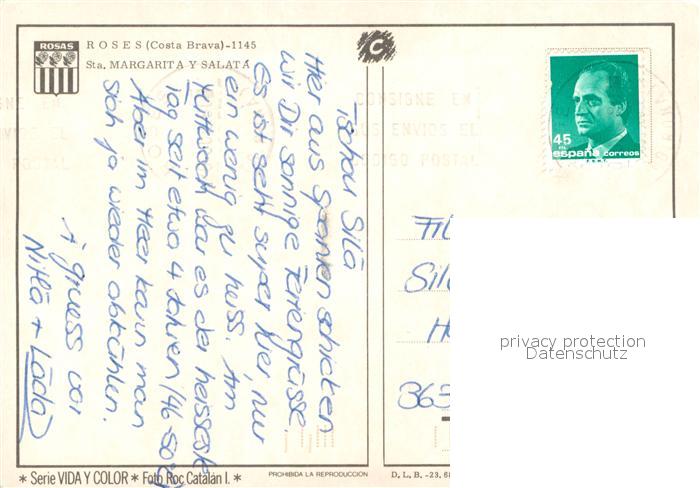 ROSAS
ROSES (Costa Brava)-1145
Sta. MARGARITA Y SALATÁ
C
CONSIGNE EN
SUS ENVIOS EL
CODIGO POSTAL
45
españa correos
Tschou Silä
Hier aus Spanien schicken
wir Dir sonnige Feriengrüsse.
Es ist seht super hier, nur
ein wenig zu heiss. Am
Mittwoch war es der heisseste
Tag seit etwa 4 Jahren (46-50°)
Aber im Meer kann man
sich ja wieder abkühlen.
Ä gruess vor
Nitlä + Lädä
Sil
H
365
privacy protection
Datenschutz
* Serie VIDA Y COLOR * Foto Roc Catalán I. *
PROHIBIDA LA REPRODUCCION
D. L. B. -23.6